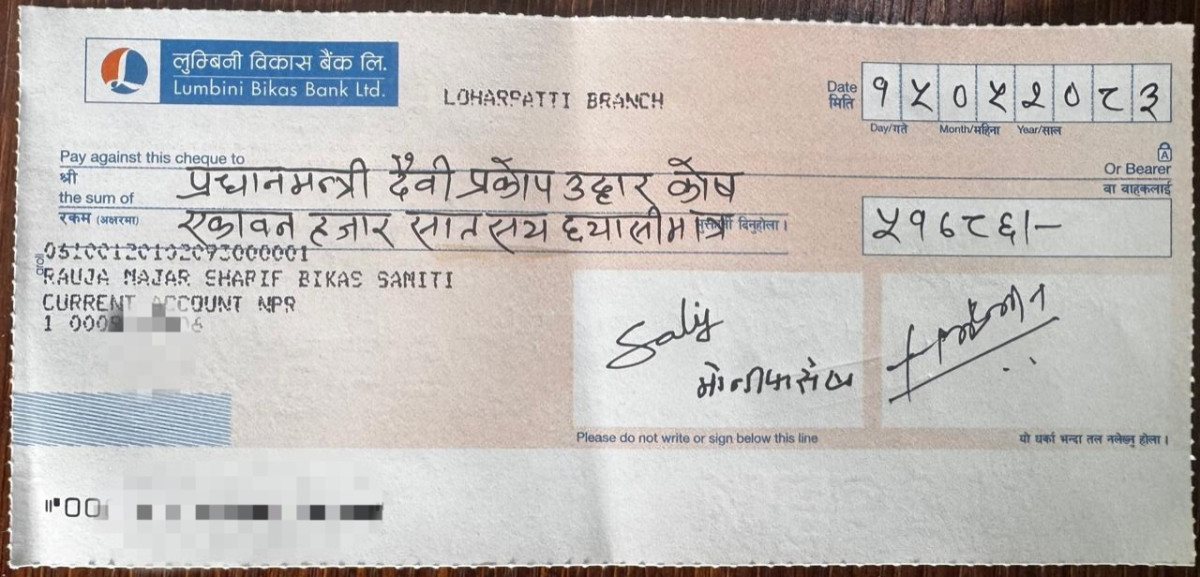 लुम्बिनी विकास बैंक लि.
Lumbini Bikas Bank Ltd.
LOHARPATTI BRANCH
Date
मिति
१५०५२०८३
Day/गते Month/महिना Year/साल
Pay against this cheque to
श्री
प्रधानमन्त्री दैवी प्रकोप उद्दार कोष
Or Bearer
वा वाहकलाई
the sum of
रकम (अक्षरमा)
एकावन हजार सात सय छयासी मात्र
दिनुहोला ।
५१७८६/-
RAUJA MAJAR SHARIF BIKAS SAMITI
CURRENT ACCOUNT NPR
Please do not write or sign below this line
यो धर्का भन्दा तल नलेख्नु होला ।